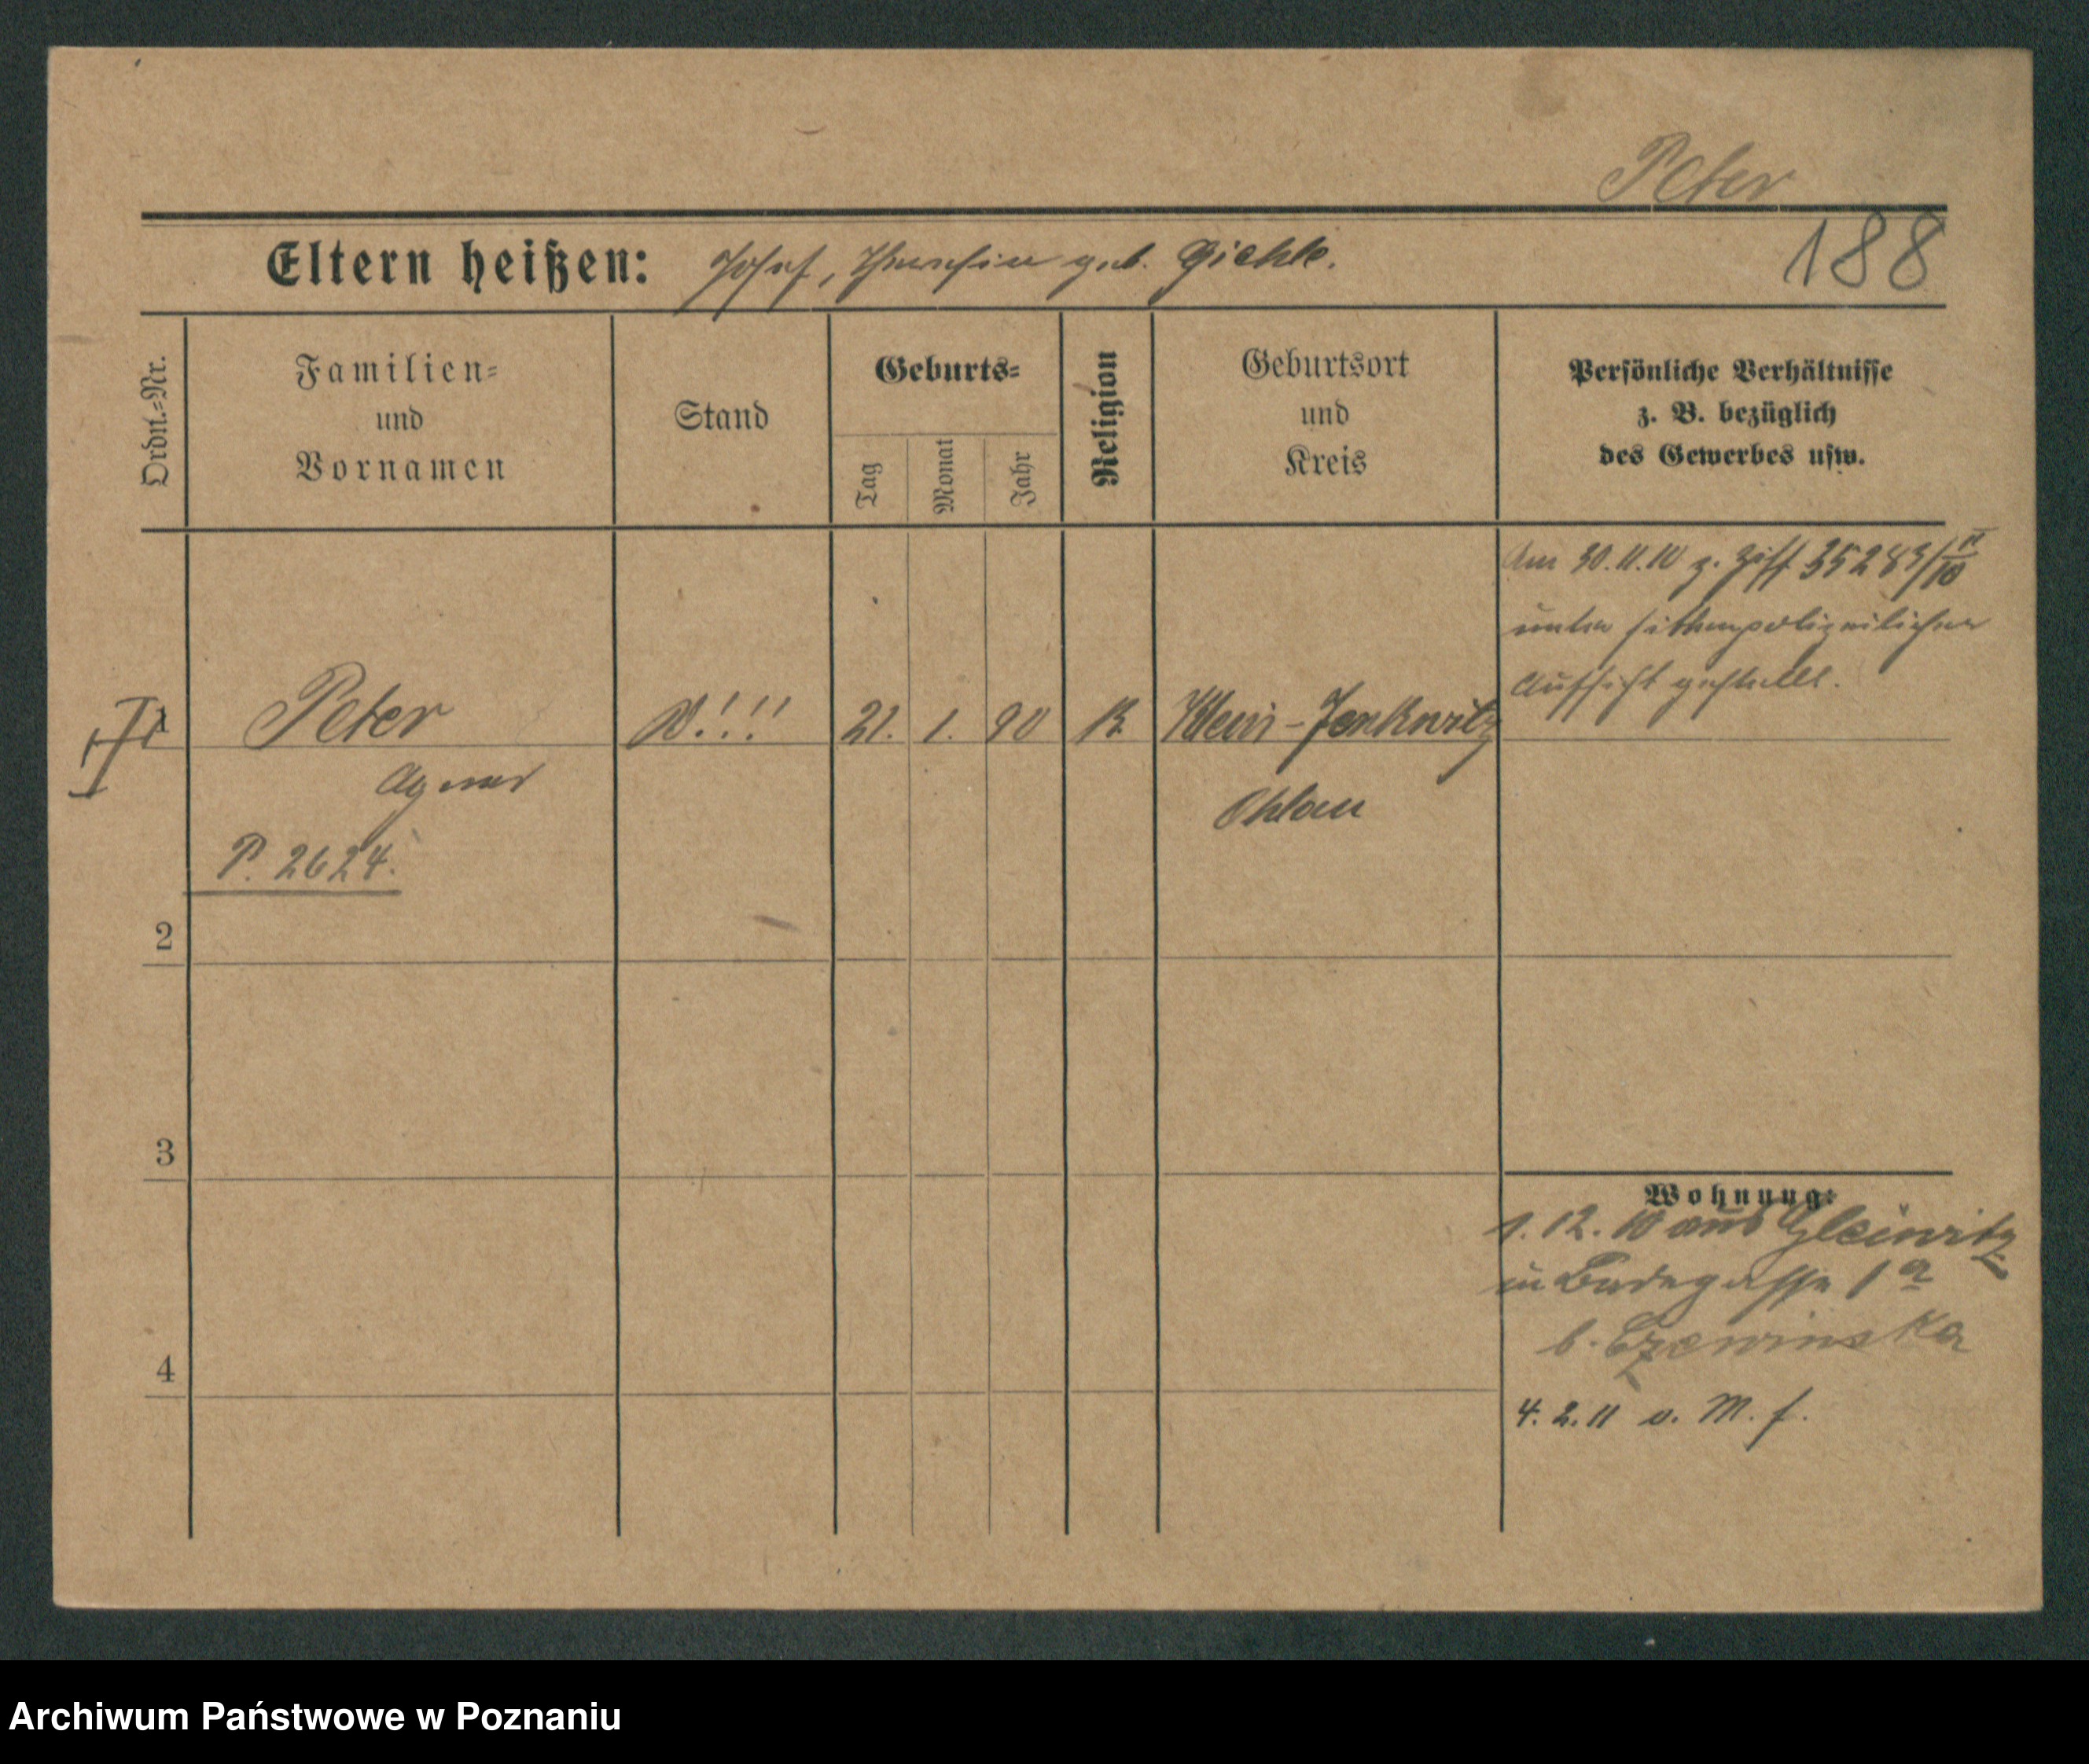 Peter
188
Eltern heißen: Josef, Theresia geb. Giehle.
Ordn.-Nr.
Familien-
und
Vornamen
Stand
Geburts-
Tag
Monat
Jahr
Religion
Geburtsort
und
Kreis
Persönliche Verhältnisse
z. B. bezüglich
des Gewerbes usw.
Am 30.11.10 z. Ziff 35283/10
unter sittenpolizeilicher
Aufsicht gestellt.
1 Peter !!! 21. 1. 90 K. Klein-Jenkwitz
Agnes
Ohlau
P. 2624.
2
3
4
Wohnung:
1. 12. 10 aus Gleiwitz
in Badegasse 1a
b.
4. 2. 11 v. M. f.
Archiwum Państwowe w Poznaniu